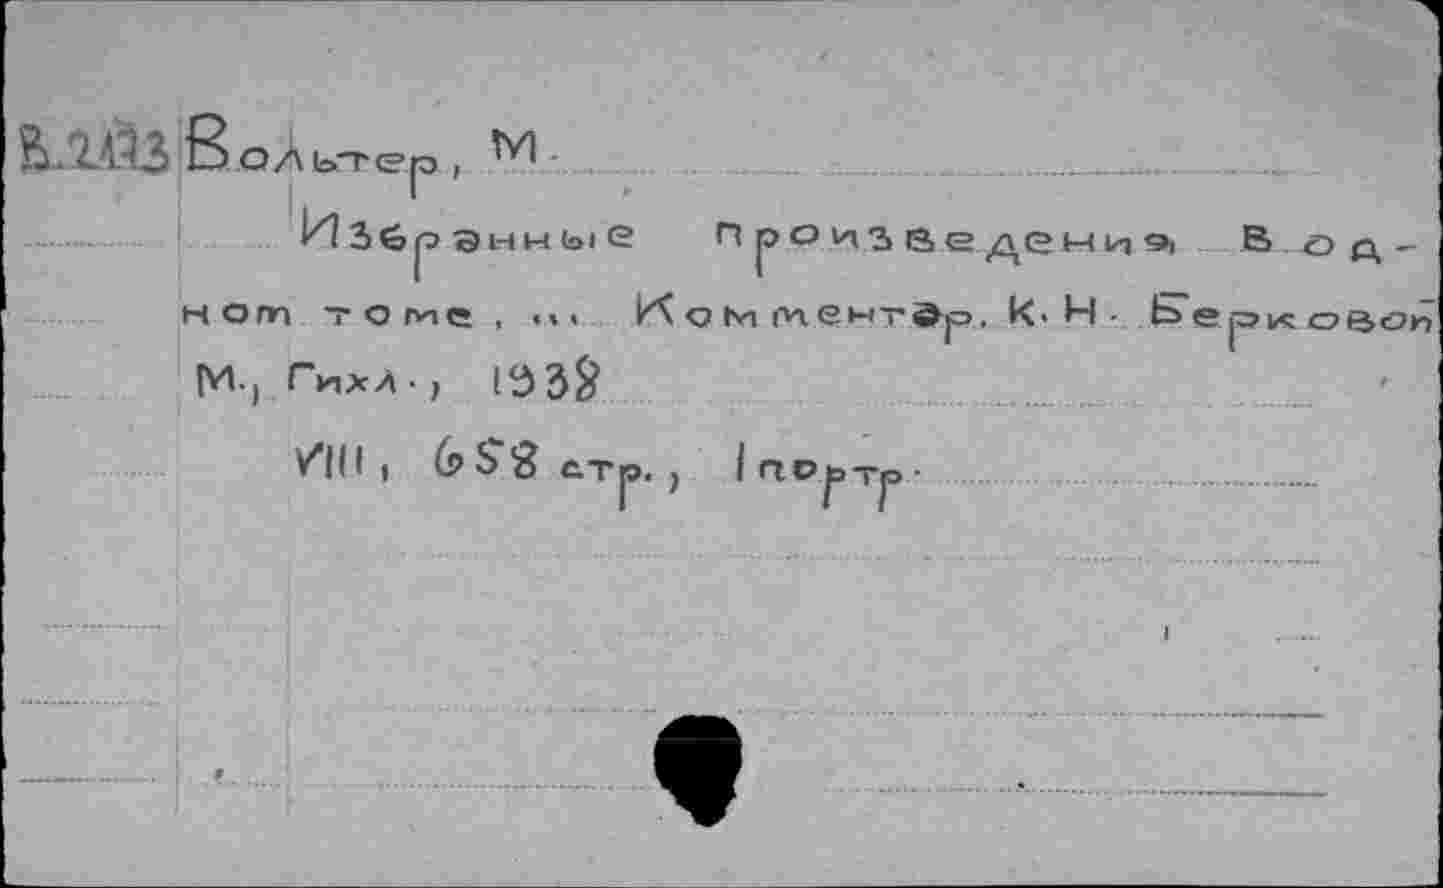 В.2193 Вольтер, М.
Избранные произведения В од-
ном томе, ... Комментар. К. Н. Берковой
М., Гихл., 1938
VIII, 658 стр., 1 портр.